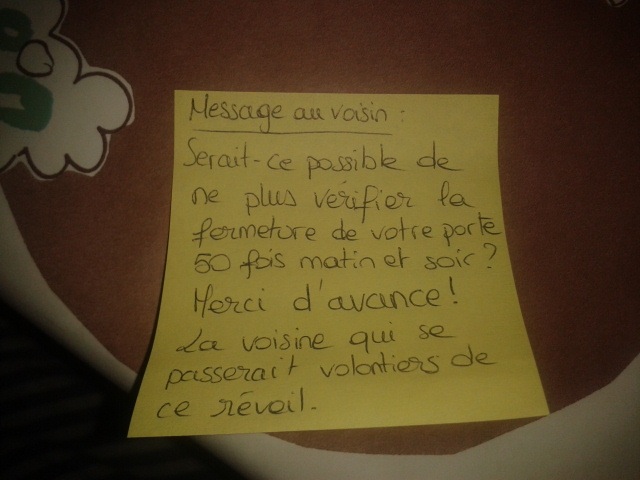 Message au voisin :
Serait-ce possible de
ne plus vérifier la
fermeture de votre porte
50 fois matin et soir ?
Merci d'avance !
La voisine qui se
passerait volontiers de
ce réveil.